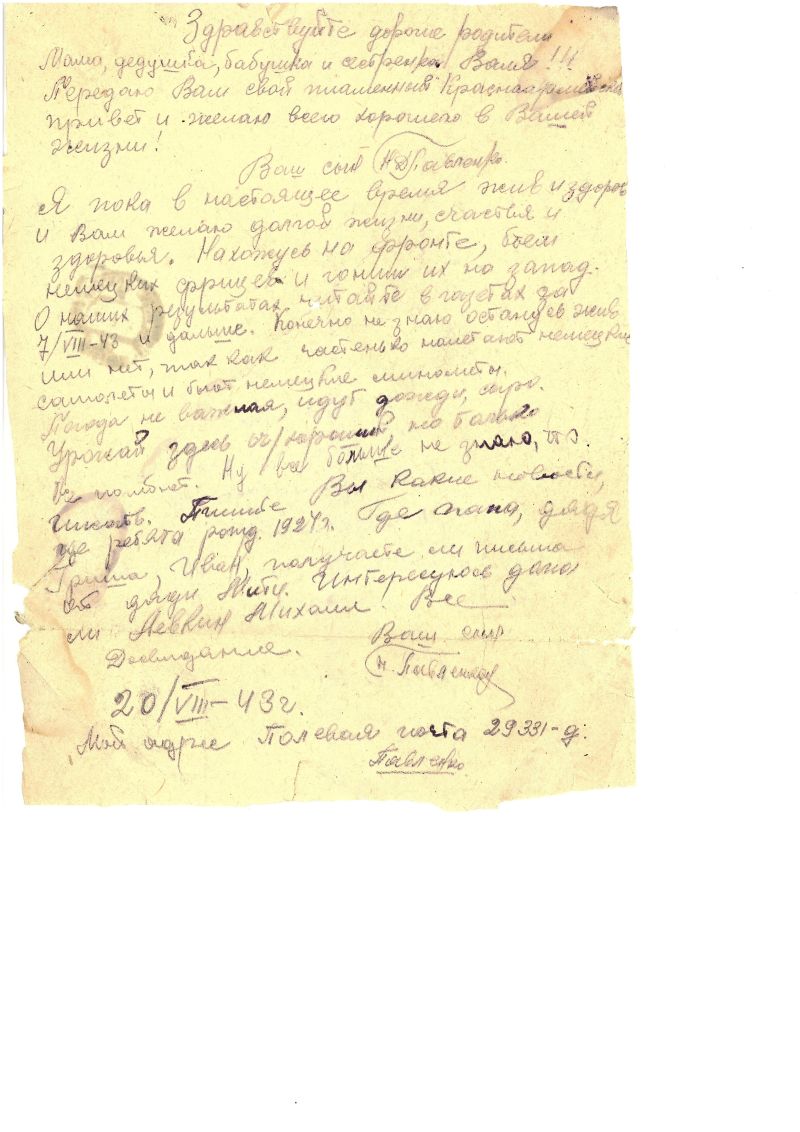 Здравствуйте дорогие родители
Мама, дедушка, бабушка и сестренка Валя!!!
Передаю Вам свой пламенный Красноармейский
привет и желаю всего хорошего в Вашей
жизни!
Ваш сын Н Д Павленко.
Я пока в настоящее время жив и здоров
и Вам желаю долгой жизни, счастья и
здоровья. Нахожусь на фронте, бьем
немецких фрицев и гоним их на запад.
О наших результатах читайте в газетах за
7/VIII-43 и дальше. Конечно не знаю останусь жив
или нет, так как частенько налетают немецкие
самолеты и бьют немецкие минометы.
Погода не важная, идут дожди, сыро.
Урожай здесь оч/хороший но только
Ну все больше не знаю, что
писать. Пишите Вы какие новости,
где ребята рожд. 1924г. Где папа, дядя
Гриша, Иван, получаете ли письма
от дяди Мити. Интересуюсь дома
ли Левкин Михаил. Все
Досвидание. Ваш сын
Н. Павленко
20/VIII-43г.
Мой адрес Полевая почта 29331-д.
Павленко.